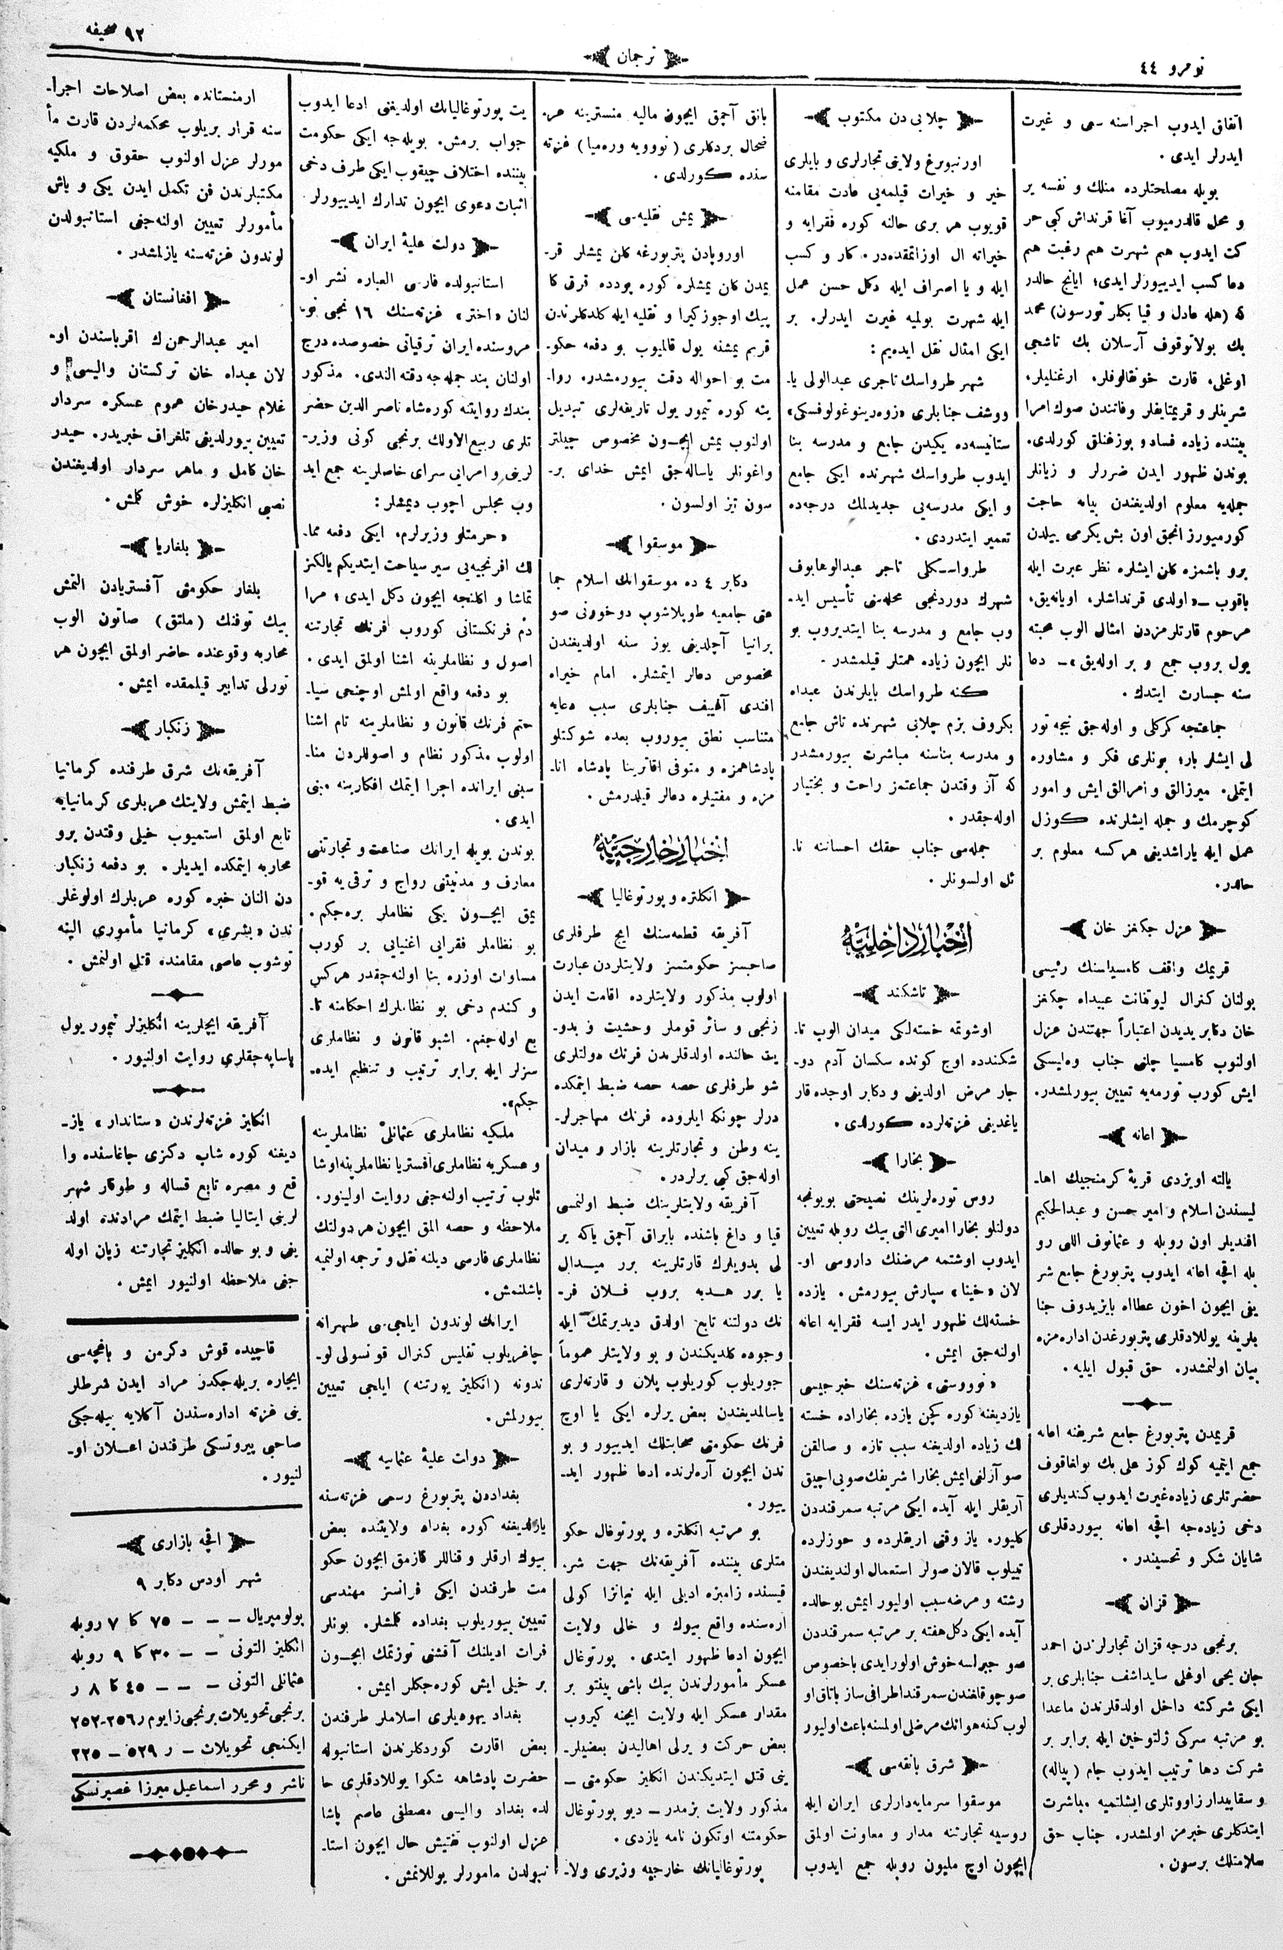 نومرو ٤٤
ترجمان
٩٢ صحيفه
اتفاق ايدوب اجراسنه سعى و غيرت
ايدرلر ايدى .
بويله مصلحتلرده منلك و نفسه ير
و محل قالدرميوب آغا قرنداش كبى حر
كت ايدوب هم شهرت هم رغبت هم
دعا كسب ايدييورلر ايدى؛ ايانج حالدر
كه (هله عادل و قيا بكلر تورسون) محمد
بك بولاتوقوف آرسلان بك تاشجى
اوغلى، قارت خونقالوفلر، ارغنليلر،
شرينلر و قريمتايفلر وفاتندن صوك امرا
بيننده زياده فساد و بوزغنلق كورلدى.
بوندن ظهور ايدن ضررلر و زيانلر
جمله‌يه معلوم اولديغندن بيانه حاجت
كورميورز انجق اون بش يكرمى ييلدن
برو باشمزه كلن ايشلره نظر عبرت ايله
باقوب ــ «اولدى قرنداشلر، اويانه‌يق،
مرحوم قارتلرمزدن امثال الوب محبته
يول بروب جمع و بر اوله‌يق» ــ دعا
سنه جسارت ايتدك .
جماعتجه كركلى و اوله‌جق نيچه تور
لى ايشلر بار؛ بونلرى فكر و مشاوره
ايتملى. ميرزالق و امرالق ايش و امور
كوچرمك و جمله ايشلرنده كوزل
عمل ايله ياراشديغى هركسه معلوم بر
حالدر.
عزل چنگز خان
قريمك واقف كامسياسنك رئيسى
بولنان كنرال ليوتفانت عبيداه چنگز
خان دكابر يديدن اعتباراً جهتندن عزل
اولنوب كامسيا چلنى جناب وه‌ايسكى
ايش كورب تورمه‌يه تعيين بيورلمشدر.
اعانه
يالته اويزدى قريهٔ كرمنجيك اها-
ليسندن اسلام و امير حسن و عبدالحكيم
افنديلر اون روبله و عثمانوف اللى رو
بله اقچه اعانه ايدوب پتربورغ جامع شر
يفى ايچون اخون عطااه بايزيدوف جنا
بلرينه يوللادقلرى پتربورغدن اداره‌مزه
بيان اولنمشدر. حق قبول ايليه .
قريمدن پتربورغ جامع شريفنه اعانه
جمع ايتميه كوك كوز على بك بولغاقوف
حضرتلرى زياده غيرت ايدوب كنديلرى
دخى زياده‌جه اقچه اعانه بيوردقلرى
شايان شكر و تحسيندر .
قزان
برنجى درجه قزان تجارلرندن احمد
جان يحيى اوغلى سايداشف جنابلرى بر
ايكى شركته داخل اولدقلرندن ماعدا
بو مرتبه سركى ژلتوخين ايله برابر بر
شركت دها ترتيب ايدوب جام (پياله)
و سقايبدار زاووتلرى ايشلتميه مباشرت
ايتدكلرى خبرمز اولمشدر. جناب حق
سلامتلك برسون .
چلابى دن مكتوب
اورنبورغ ولايتى تجارلرى و بايلرى
خير و خيرات قيلمه‌يى عادت مقامنه
قويوب هر برى حالنه كوره فقرايه و
خيراته ال اوزاتمقده‌در. كار و كسب
ايله و يا اصراف ايله دكل حسن عمل
ايله شهرت بولميه غيرت ايدرلر. بر
ايكى امثال نقل ايده‌يم :
شهر طرواسك تاجرى عبدالولى يا-
ووشف جنابلرى «زوه‌رينوغولوفسكى»
ستانيسه‌ده يكيدن جامع و مدرسه بنا
ايدوب طرواسك شهرنده ايكى جامع
و ايكى مدرسه‌يى جديدلمك درجه‌ده
تعمير ايتدردى .
طرواسكلى تاجر عبدالوهابوف
شهرك دوردنجى محله‌سنى تأسيس ايد-
وب جامع و مدرسه بنا ايتديروب بو
نلر ايچون زياده همتلر قيلمشدر .
كنه طرواسك بايلرندن عبداه
بكروف بزم چلابى شهرنده تاش جامع
و مدرسه بناسنه مباشرت بيورمشدر
كه آز وقتدن جماعتمز راحت و بختيار
اوله‌جقدر .
جمله‌سى جناب حقك احساننه نا-
ئل اولسونلر .
اخبار داخليه
تاشكند
اوشوتمه خسته‌لكى ميدان الوب تا-
شكندده اوج كونده سكسان آدم دو-
جار مرض اولديغى و دكابر اوجده قار
ياغديغى غزته‌لرده كورلدى .
بخارا
روس توره‌لرينك نصيحتى بويونجه
دولتلو بخارا اميرى التى بيك روبله تعيين
ايدوب اوشتمه مرضنك داروسى او-
لان «خينا» سپارش بيورمش . يازده
خسته‌لك ظهور ايدر ايسه فقرايه اعانه
اولنه‌جق ايمش .
«نووستى» غزته‌سنك خبرجيسى
يازديغنه كوره كچن يازده بخاراده خسته
لك زياده اولديغنه سبب تازه و صالقن
صو آزلغى ايمش بخارا شريفك صويى اچيق
آريقلر ايله آيده ايكى مرتبه سمرقنددن
كليور. ياز وقتى اريقلرده و حوزلرده
تپيلوب قالان صولر استعمال اولنديغندن
رشته و مرضه سبب اوليور ايمش بوحالده
آيده ايكى دكل هفته بر مرتبه سمرقنددن
صو جبراسه خوش اولورايدى باخصوص
صو چوقلغندن سمرقند اطرافى ساز باتاق او
لوب كنه هوانك مرضلى اولمسنه باعث اوليور
شرق بانقه‌سى
موسقوا سرمايه‌دارلرى ايران ايله
روسيه تجارتنه مدار و معاونت اولمق
ايچون اوچ مليون روبله جمع ايدوب
بانق آچمق ايچون ماليه منسترينه عر-
ضحال بردكلرى (نوويه وره‌ميا) غزته
سنده كورلدى .
يمش نقليه‌سى
اوروپادن پتربورغه كلن يمشلر قر-
يمدن كان يمشلره كوره پودده قرق كا
پيك اوجوزكيرا و نقليه ايله كلدكلرندن
قريم يمشنه يول قالميوب بو دفعه حكو-
مت بو احواله دقت بيورمشدر. روا-
يته كوره تيمور يول تاريفه‌لرى تبديل
اولنوب يمش ايچون مخصوص چيلتر
واغونلر ياساله‌جق ايمش خداى بر-
سون تيز اولسون .
موسقوا
دكابر ٤ ده موسقوانك اسلام جما
عتى جامعيه طوپلاشوب دوخوونى صو
برانيا آچلديغى يوز سنه اولديغندن
مخصوص دعالر ايتمشلر. امام خيراه
افندى آگييف جنابلرى سبب دعايه
متناسب نطق بيوروب بعده شوكتلو
پادشاهمزه و متوفى اقاترينا پادشاه انا-
مزه و مفتيلره دعالر قيلدرمش .
اخبار خارجيه
انكلتره و پورتوغاليا
آفريقه قطعه‌سنك ايچ طرفلرى
صاحبسز حكومتسز ولايتلردن عبارت
اولوب مذكور ولايتلرده اقامت ايدن
زنجى و سائر قوملر وحشيت و بدو-
يت حالنده اولدقلرمدن فرنك دولتلرى
شو طرفلرى حصه حصه ضبط ايتمكده
درلر چونكه ايلروده فرنك مهاجرلر-
ينه وطن و تجارتلرينه بازار و ميدان
اوله‌جق كبى يرلردر.
آفريقه ولايتلرينك ضبط اولنمسى
قيا و داغ باشنده بايراق آچمق ياكه بر
لى بدويلرك قارتلرينه برر ميدال
يا برر هديه بروب فلان فر-
نك دولتنه تابع اولدق ديديرتمك ايله
وجوده كلديكندن و بو ولايتلر عموماً
جوريلوب كوريلوب پلان و قارته‌لرى
ياسالمديغندن بعض يرلره ايكى يا اوچ
فرنك حكومتى صحابتلك ايدييور و بو
ندن ايچون آره‌لرنده ادعا ظهور ايد-
ييور .
بو مرتبه انكلتره و پورتوغال حكو
متلرى بيننده آفريقه‌نك جهت شر-
قيسنده زامبزه اديلى ايله نيانزا كولى
اره‌سنده واقع بيوك و خالى ولايت
ايچون ادعا ظهور ايتدى. پورتوغال
عسكر مأمورلرندن بيك باشى پينتو بر
مقدار عسكر ايله ولايت ايچنه كيروب
بعض حركت و يرلى اهاليدن بعضيلر-
ينى قتل ايتديكندن انكليز حكومتى ــ
مذكور ولايت بزمدر ــ ديو پورتوغال
حكومتنه اوتكون نامه يازدى .
پورتوغاليانك خارجيه وزيرى ولا-
يت پورتوغاليانك اولديغنى ادعا ايدوب
جواب برمش. بويله‌جه ايكى حكومت
بيننده اختلاف چيقوب ايكى طرف دخى
اثبات دعوى ايچون تدارك ايدييورلر.
دولت عليهٔ ايران
استانبولده فارسى العباره نشر او-
لنان «اختر» غزته‌سنك ١٦ نجى نو-
مروسنده ايران ترقياتى خصوصده درج
اولنان بند جمله‌جه دقته الندى. مذكور
بندك روايتنه كوره شاه ناصر الدين حضر
تلرى ربيع الاولك برنجى كونى وزير-
لرينى و امرايى سراى خاصلرينه جمع ايد
وب مجلس اچوب ديمشلر :
«حرمتلو وزيرلرم، ايكى دفعه مما-
لك افرنجيه‌يى سير سياحت ايتديكم يالكز
تماشا و اكلنجه ايچون دكل ايدى؛ مرا
دم فرنكستانى كوروب افرنك تجارتنه
اصول و نظاملرينه اشنا اولمق ايدى .
بو دفعه واقع اولمش اوچنجى سيا-
حتم فرنك قانون و نظاملرينه تام اشنا
اولوب مذكور نظام و اصوللردن منا-
سبنى ايرانده اجرا ايتمك افكارينه مبنى
ايدى .
بوندن بويله ايرانك صناعت و تجارتنى
معارف و مدنيتنى رواج و ترقى يه قو-
يمق ايچون يكى نظاملر بره‌جكم.
بو نظاملر فقرايى اغنيايى بر كورب
مساوات اوزره بنا اولنه‌جقدر هركس
و كندم دخى بو نظاملرك احكامنه تا-
بع اوله‌جغم. اشبو قانون و نظاملرى
سزلر ايله برابر ترتيب و تنظيم ايده-
جكم».
ملكيه نظاملرى عثمانلى نظاملرينه
و عسكريه نظاملرى آفستريا نظاملرينه اوشا
تلوب ترتيب اولنه‌جغى روايت اولينور.
ملاحظه و حصه المق ايچون هر دولتك
نظاملرى فارسى ديلنه نقل و ترجمه اولنميه
باشلنمش.
ايرانك لوندون ايلجى‌سى طهرانه
چاغريلوب تفليس كنرال قونسولى لو-
ندونه (انكليز يورتنه) ايلجى تعيين
بيورلمش .
دولت عليهٔ عثمانيه
بغداددن پتربورغ رسمى غزته‌سنه
يازلديغنه كوره بغداد ولايتنده بعض
بيوك ارقلر و قناللر قازمق ايچون حكو
مت طرفندن ايكى فرانسز مهندسى
تعيين بيوريلوب بغداده كلمشلر. بونلر
فرات اديلنك آقشى توزتمك ايچون
بر خيلى ايش كوره‌جكلر ايمش .
بغداد يهوديلرى اسلاملر طرفندن
بعض اقارت كوردكلرندن استانبوله
حضرت پادشاهه شكوا يوللادقلرى حا
لده بغداد واليسى مصطفى عاصم پاشا
عزل اولنوب تفتيش حال ايچون استا-
نبولدن مامورلر يوللانمش .
ارمنستانده بعض اصلاحات اجرا-
سنه قرار بريلوب محكمه‌لردن قارت مأ
مورلر عزل اولنوب حقوق و ملكيه
مكتبلرندن فن تكمل ايدن يكى و ياش
مأمورلر تعيين اولنه‌جغى استانبولدن
لوندون غزته‌سنه يازلمشدر .
افغانستان
امير عبدالرحمن ك اقرباسندن او-
لان عبداه خان تركستان واليسى و
غلام حيدرخان عموم عسكره سردار
تعيين بيورلديغى تلغراف خبريدر. حيدر
خان كامل و ماهر سردار اولديغندن
نصبى انكليزلره خوش كلمش .
بلغاريا
بلغار حكومتى آفستريادن التمش
بيك توفنك (ملتق) صاتون الوب
محاربه وقوعنده حاضر اولمق ايچون هر
تورلى تدابير قيلمقده ايمش .
زنكبار
آفريقه‌نك شرق طرفنده كرمانيا
ضبط ايتمش ولايتك عربلرى كرمانيايه
تابع اولمق استميوب خيلى وقتدن برو
محاربه ايتمكده ايديلر. بو دفعه زنكبار
دن النان خبره كوره عربلرك اولوغلر
ندن «بشرى» كرمانيا مأمورى الينه
توشوب عاصى مقامنده قتل اولنمش .
آفريقه ايچلرينه انكليزلر تيمور يول
ياسايه‌جقلرى روايت اولنيور .
انكليز غزته‌لرندن «ستاندار» ياز-
ديغنه كوره شاب دكزى جاغاسنده وا
قع و مصره تابع قساله و طوقار شهر
لرينى ايتاليا ضبط ايتمك مرادنده اولد
يغى و بو حالده انكليز تجارتنه زيان اوله
جغى ملاحظه اولنيور ايمش .
قاچيده قوش دكرمن و باغچه‌سى
ايجاره بريله‌جكدر مراد ايدن شرطلر
ينى غزته اداره‌سندن آكلايه بيله‌جكى
صاحبى پيروتسكى طرفندن اعلان او-
لنيور .
اقچه بازارى
شهر اودس دكابر ٩
پولومپريال ــ ــ ــ ٧٥ كا ٧ روبله
انكليز التونى ــ ــ ٣٠ كا ٩ روبله
عثمانلى التونى ــ ــ ــ ٤٥ كا ٨ ر
برنجى تحويلات برنجى زايوم ر ٢٥٦-٢٥٢
ايكنجى تحويلات ــ ر ٥٢٩ ــ ٢٢٥
ناشر و محرر اسماعيل ميرزا غصپرنسكى